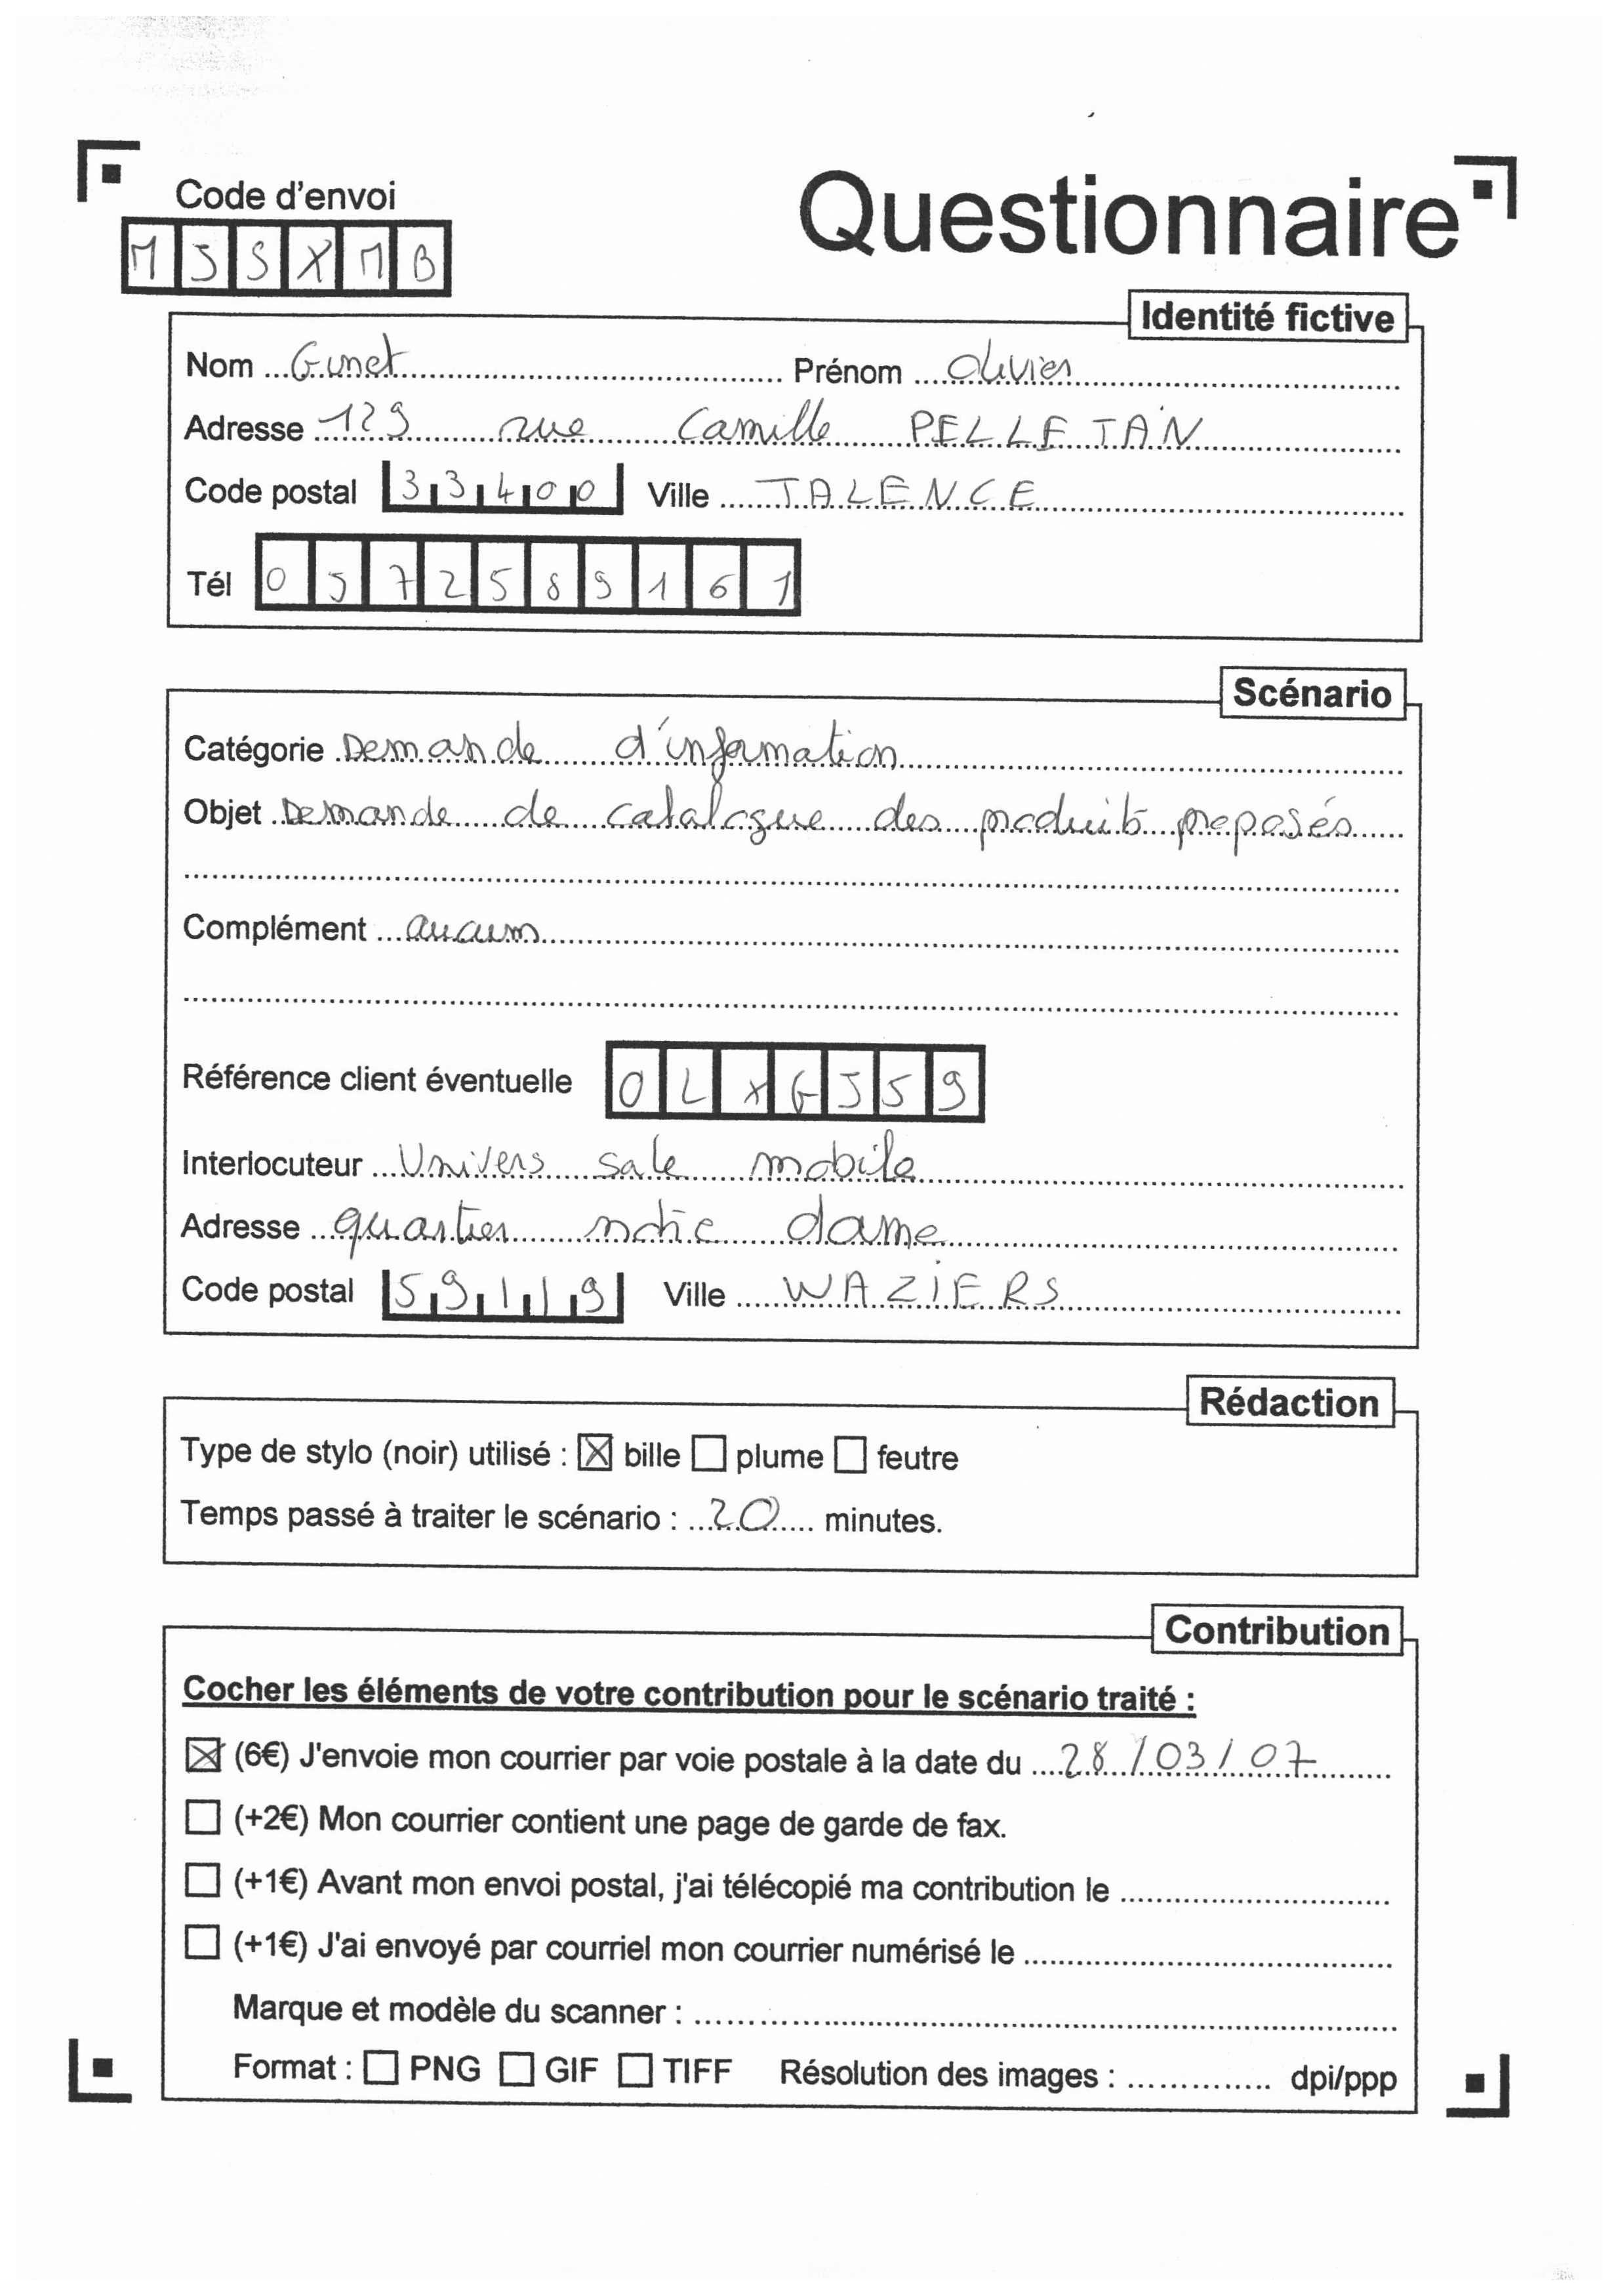 Code d'envoi
Questionnaire
M J S X M B
Identité fictive
Nom Gunet Prénom Olivier
Adresse 129 rue Camille PELLETAN
Code postal 33400 Ville TALENCE
Tél 0 5 7 2 5 8 9 1 6 1
Scénario
Catégorie Demande d'information
Objet Demande de catalogue des produits proposés
Complément aucun
Référence client éventuelle O L X G J 5 9
Interlocuteur Univers sale mobile
Adresse quartier notre dame
Code postal 59119 Ville WAZIERS
Rédaction
Type de stylo (noir) utilisé : ☒ bille ☐ plume ☐ feutre
Temps passé à traiter le scénario : 20 minutes.
Contribution
Cocher les éléments de votre contribution pour le scénario traité :
☒ (6€) J'envoie mon courrier par voie postale à la date du 28/03/07
☐ (+2€) Mon courrier contient une page de garde de fax.
☐ (+1€) Avant mon envoi postal, j'ai télécopié ma contribution le
☐ (+1€) J'ai envoyé par courriel mon courrier numérisé le
Marque et modèle du scanner :
Format : ☐ PNG ☐ GIF ☐ TIFF Résolution des images : dpi/ppp